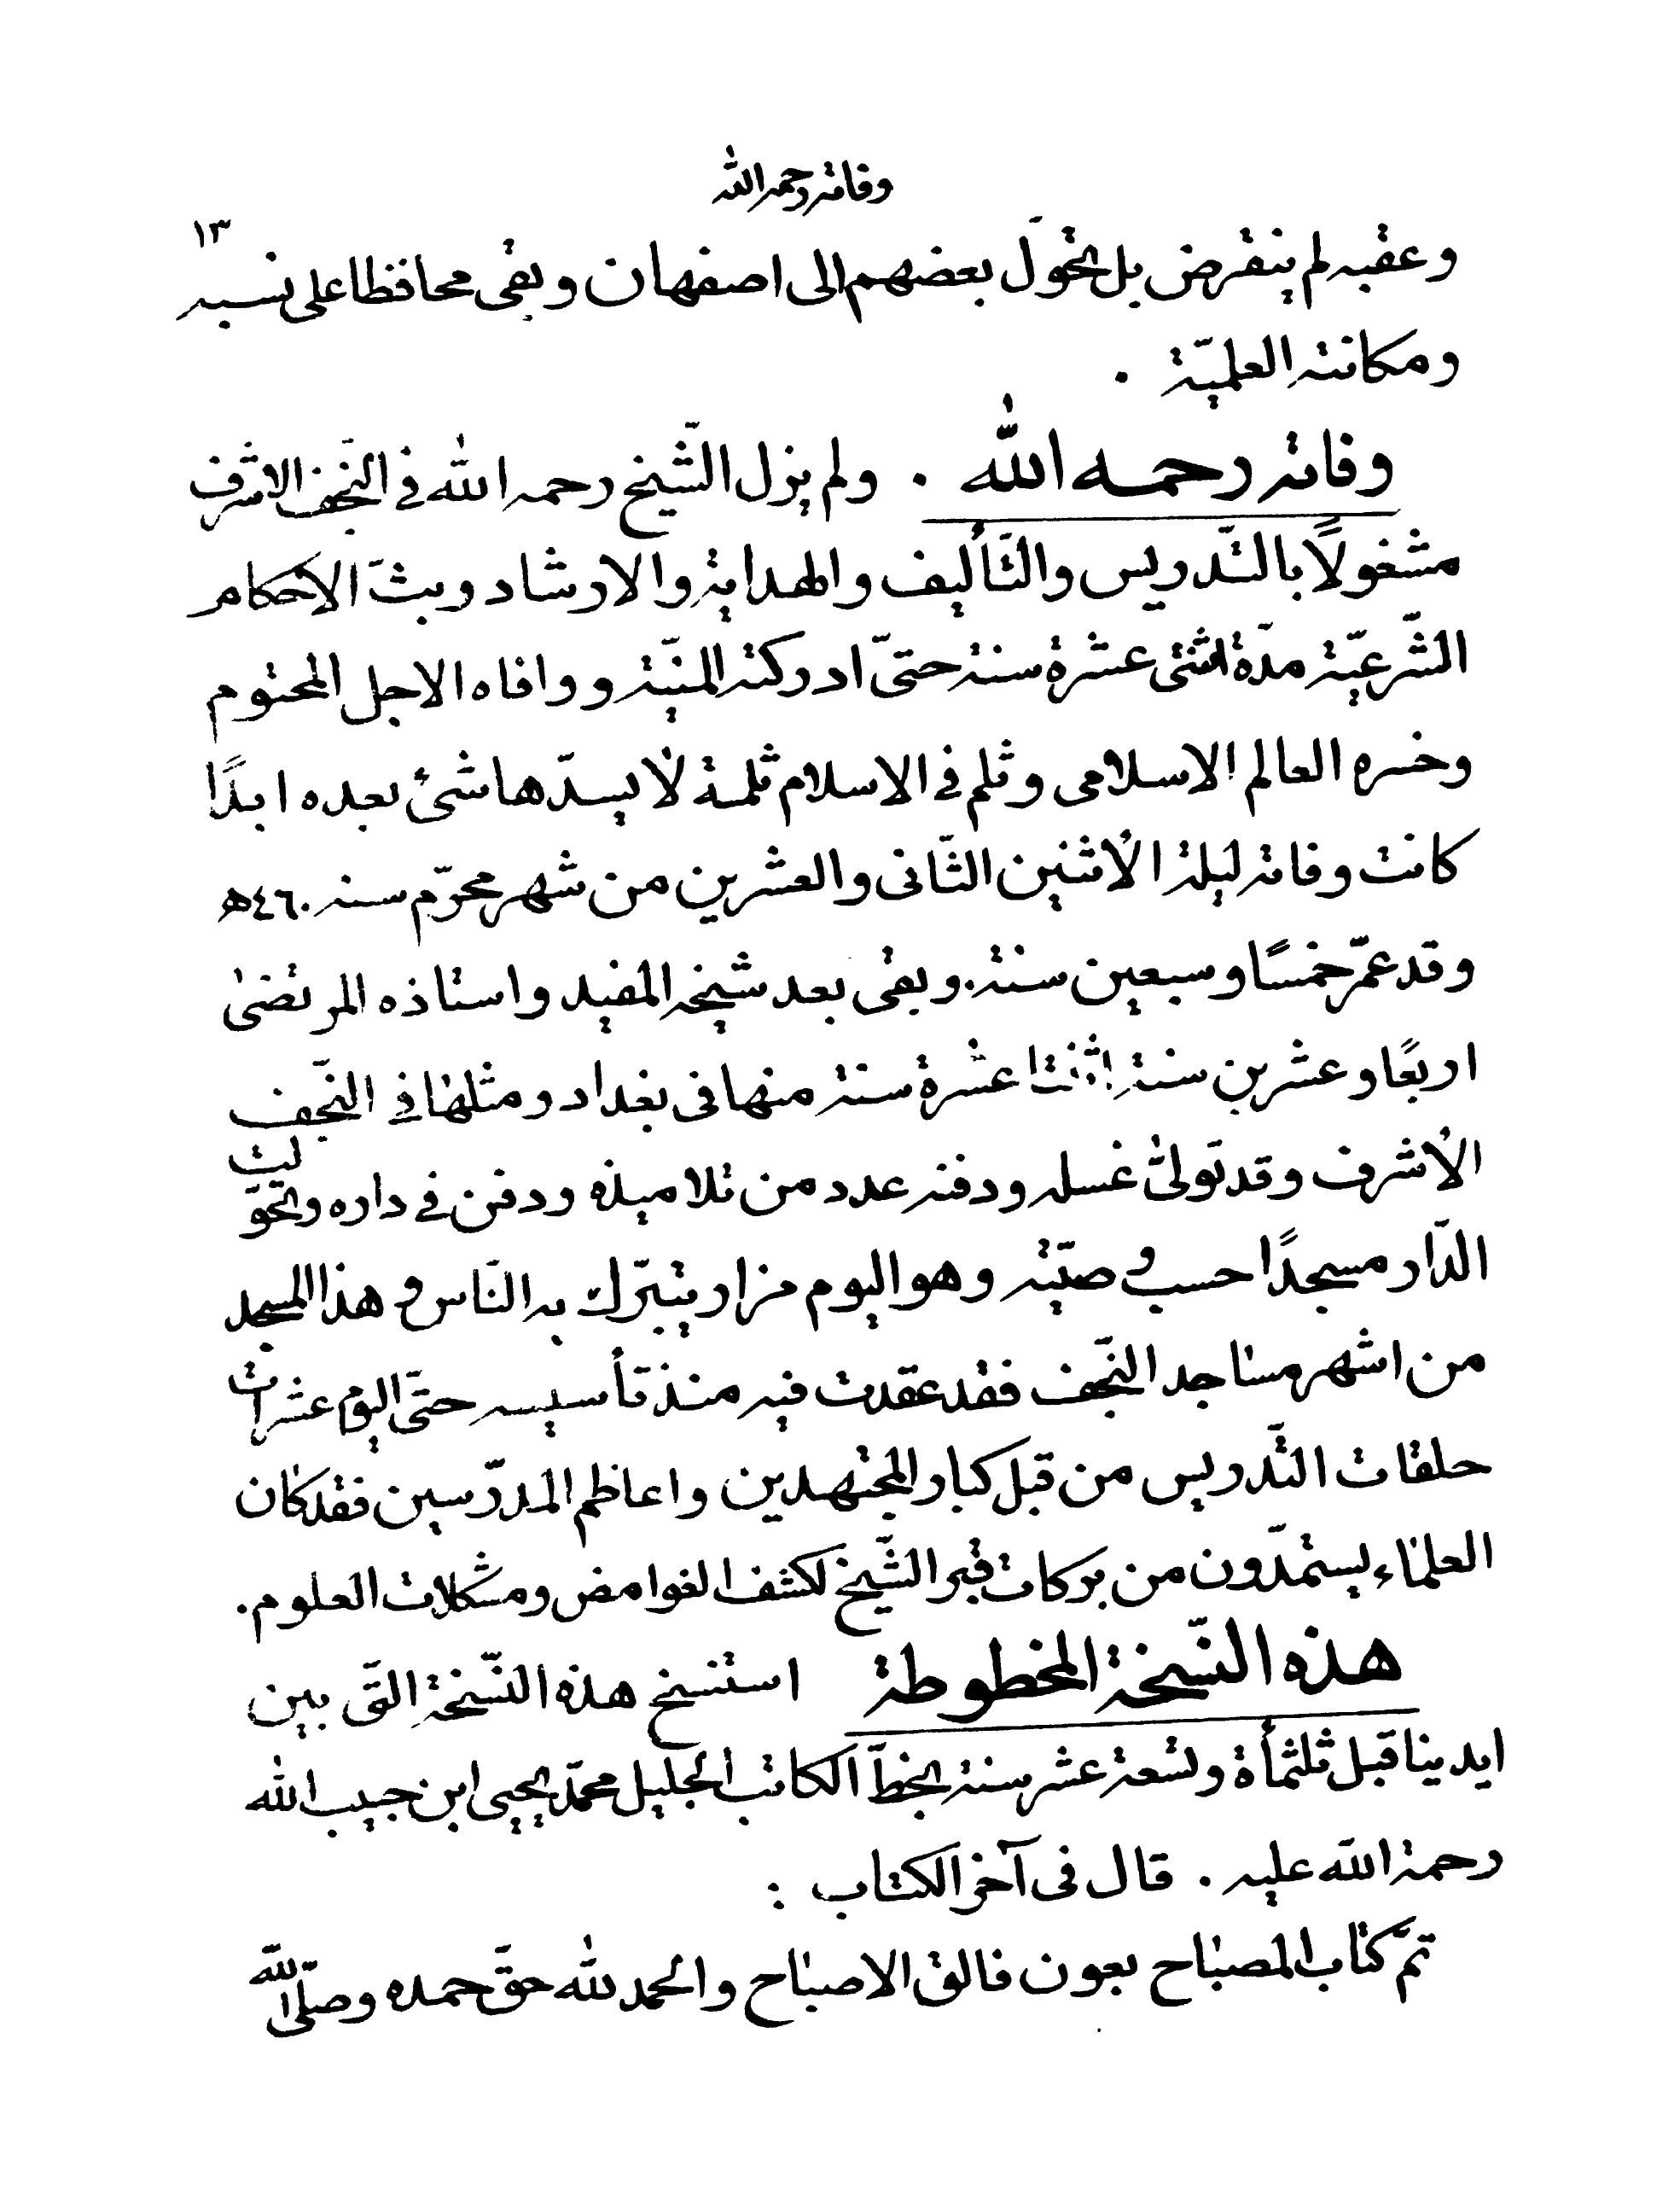 وفاته رحمه الله
١٣
وعقبه لم ينقرض بل تحوّل بعضهم الى اصفهان وبقى محافظا على نسبه
ومكانته العلميّة .
وفاته رحمه الله . ولم يزل الشّيخ رحمه الله فى النّجف الاشرف
مشغولًا بالتّدريس والتّأليف والهداية والارشاد وبثّ الاحكام
الشّرعيّة مدّة اثنتى عشرة سنة حتىّ ادركته المنيّة ووافاه الاجل المحتوم
وخسره العالم الاسلامى وثلم فى الاسلام ثلمة لا يسدّها شئ بعده ابدًا
كانت وفاته ليلة الأثنين الثّانى والعشرين من شهر محرّم سنه ٤٦٠ه
وقد عمّر خمسًا وسبعين سنة . وبقى بعد شيخه المفيد واستاذه المرتضىٰ
اربعًا وعشرين سنة اثنتا عشرة سنة منها فى بغداد ومثلها فى النّجف
الأشرف وقد تولىّٰ غسله ودفنه عدد من تلاميذه ودفن فى داره وتحوّلت
الدّار مسجدًا حسب وصيّته وهو اليوم مزار يتبرّك به النّاس وهذا المسجد
من اشهر مساجد النّجف فقد عقدت فيه منذ تأسيسه حتىّ اليوم عشرات
حلقات التّدريس من قبل كبار المجتهدين واعاظم المدرّسين فقد كان
العلمٰاء يستمدّون من بركات قبر الشّيخ لكشف الغوامض ومشكلات العلوم .
هذه النّسخة المخطوطة استنسخ هذه النّسخة الّتى بين
ايدينا قبل ثلثمأة وتسعة عشر سنة بخطّ الكاتب الجليل محمّد يحيى ابن حبيب الله
رحمة الله عليه . قال فى آخر الكتاب :
تمّ كتٰاب المصبٰاح بعون فالق الاصبٰاح والحمد لله حقّ حمده وصلّى الله